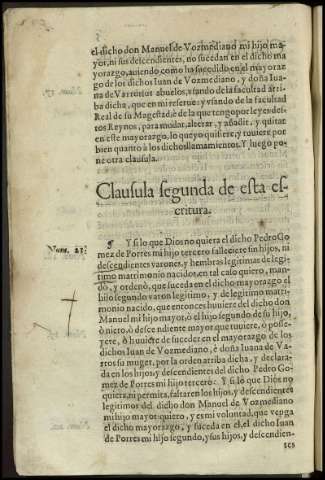 el dicho don Manuel de Vozmediano mi hijo ma-
yor, ni sus descendientes, no sucedan en el dicho ma
yorazgo, auiendo como ha sucedido en el mayoraz
go de los dichos Iuan de Vozmediano, y doña Iua
na de Varros sus abuelos, vsando de la facultad arri
ba dicha, que en mi reserue: y vsando de la facultad
Real de su Magestad, è de la que tengo por leyes des-
tos Reynos, para mudar, alterar, y añadir, y quitar
en este mayorazgo, lo que yo quisiere, y tuuiere por
bien quanto à los dichos llamamientos. Y luego po-
ne otra clausula.
Clausula segunda de esta es-
critura.
Num. 23.
¶ Y si lo que Dios no quiera el dicho Pedro Go
mez de Porres mi hijo tercero falleciere sin hijos, ni
descendientes varones, y hembras legitimas de legi-
timo matrimonio nacidos, en tal caso quiero, man-
dò, y ordenò, que suceda en el dicho mayorazgo el
hijo segundo varon legitimo, y de legitimo matri-
monio nacido, que entonces huuiere del dicho don
Manuel mi hijo mayor, ò el hijo segundo de su hijo,
ò nieto, ò descendiente mayor que tuuiere, ò posse-
yere, ò huuiere de suceder en el mayorazgo de los
dichos Iuan de Vozmediano, è doña Iuana de Va-
rros su muger, por la orden arriba dicha, y declara-
da en los hijos y descendientes del dicho Pedro Go-
mez de Porres mi hijo tercero: Y si lo que Diòs no
quiera, ni permita, faltaren los hijos, y descendientes
legitimos del dicho don Manuel de Vozmediano
mi hijo mayor quiero, y es mi voluntad, que venga
el dicho mayorazgo, y suceda en el, el dicho Iuan
de Porres mi hijo segundo, y sus hijos, y descendien-
tes